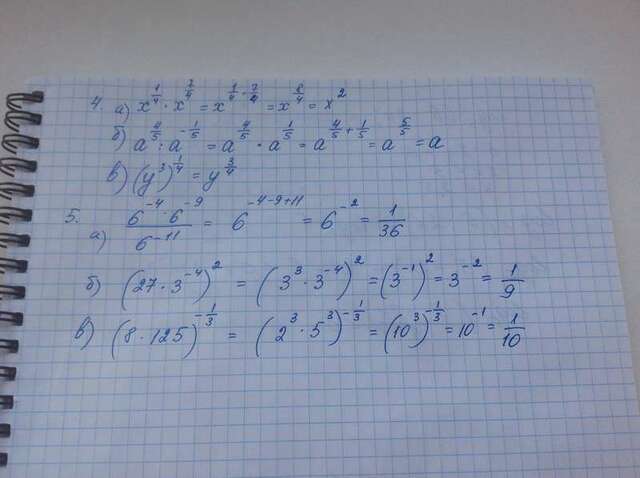 4. а) x^{1/4} · x^{7/4} = x^{1/4 · 7/4} = x^{8/4} = x^2
б) a^{4/5} : a^{-1/5} = a^{4/5} · a^{1/5} = a^{4/5 + 1/5} = a^{5/5} = a
в) (y^3)^{1/4} = y^{3/4}
5. а) (6^{-4} · 6^{-9}) / 6^{-11} = 6^{-4-9+11} = 6^{-2} = 1/36
б) (27 · 3^{-4})^2 = (3^3 · 3^{-4})^2 = (3^{-1})^2 = 3^{-2} = 1/9
в) (8 · 125)^{-1/3} = (2^3 · 5^3)^{-1/3} = (10^3)^{-1/3} = 10^{-1} = 1/10